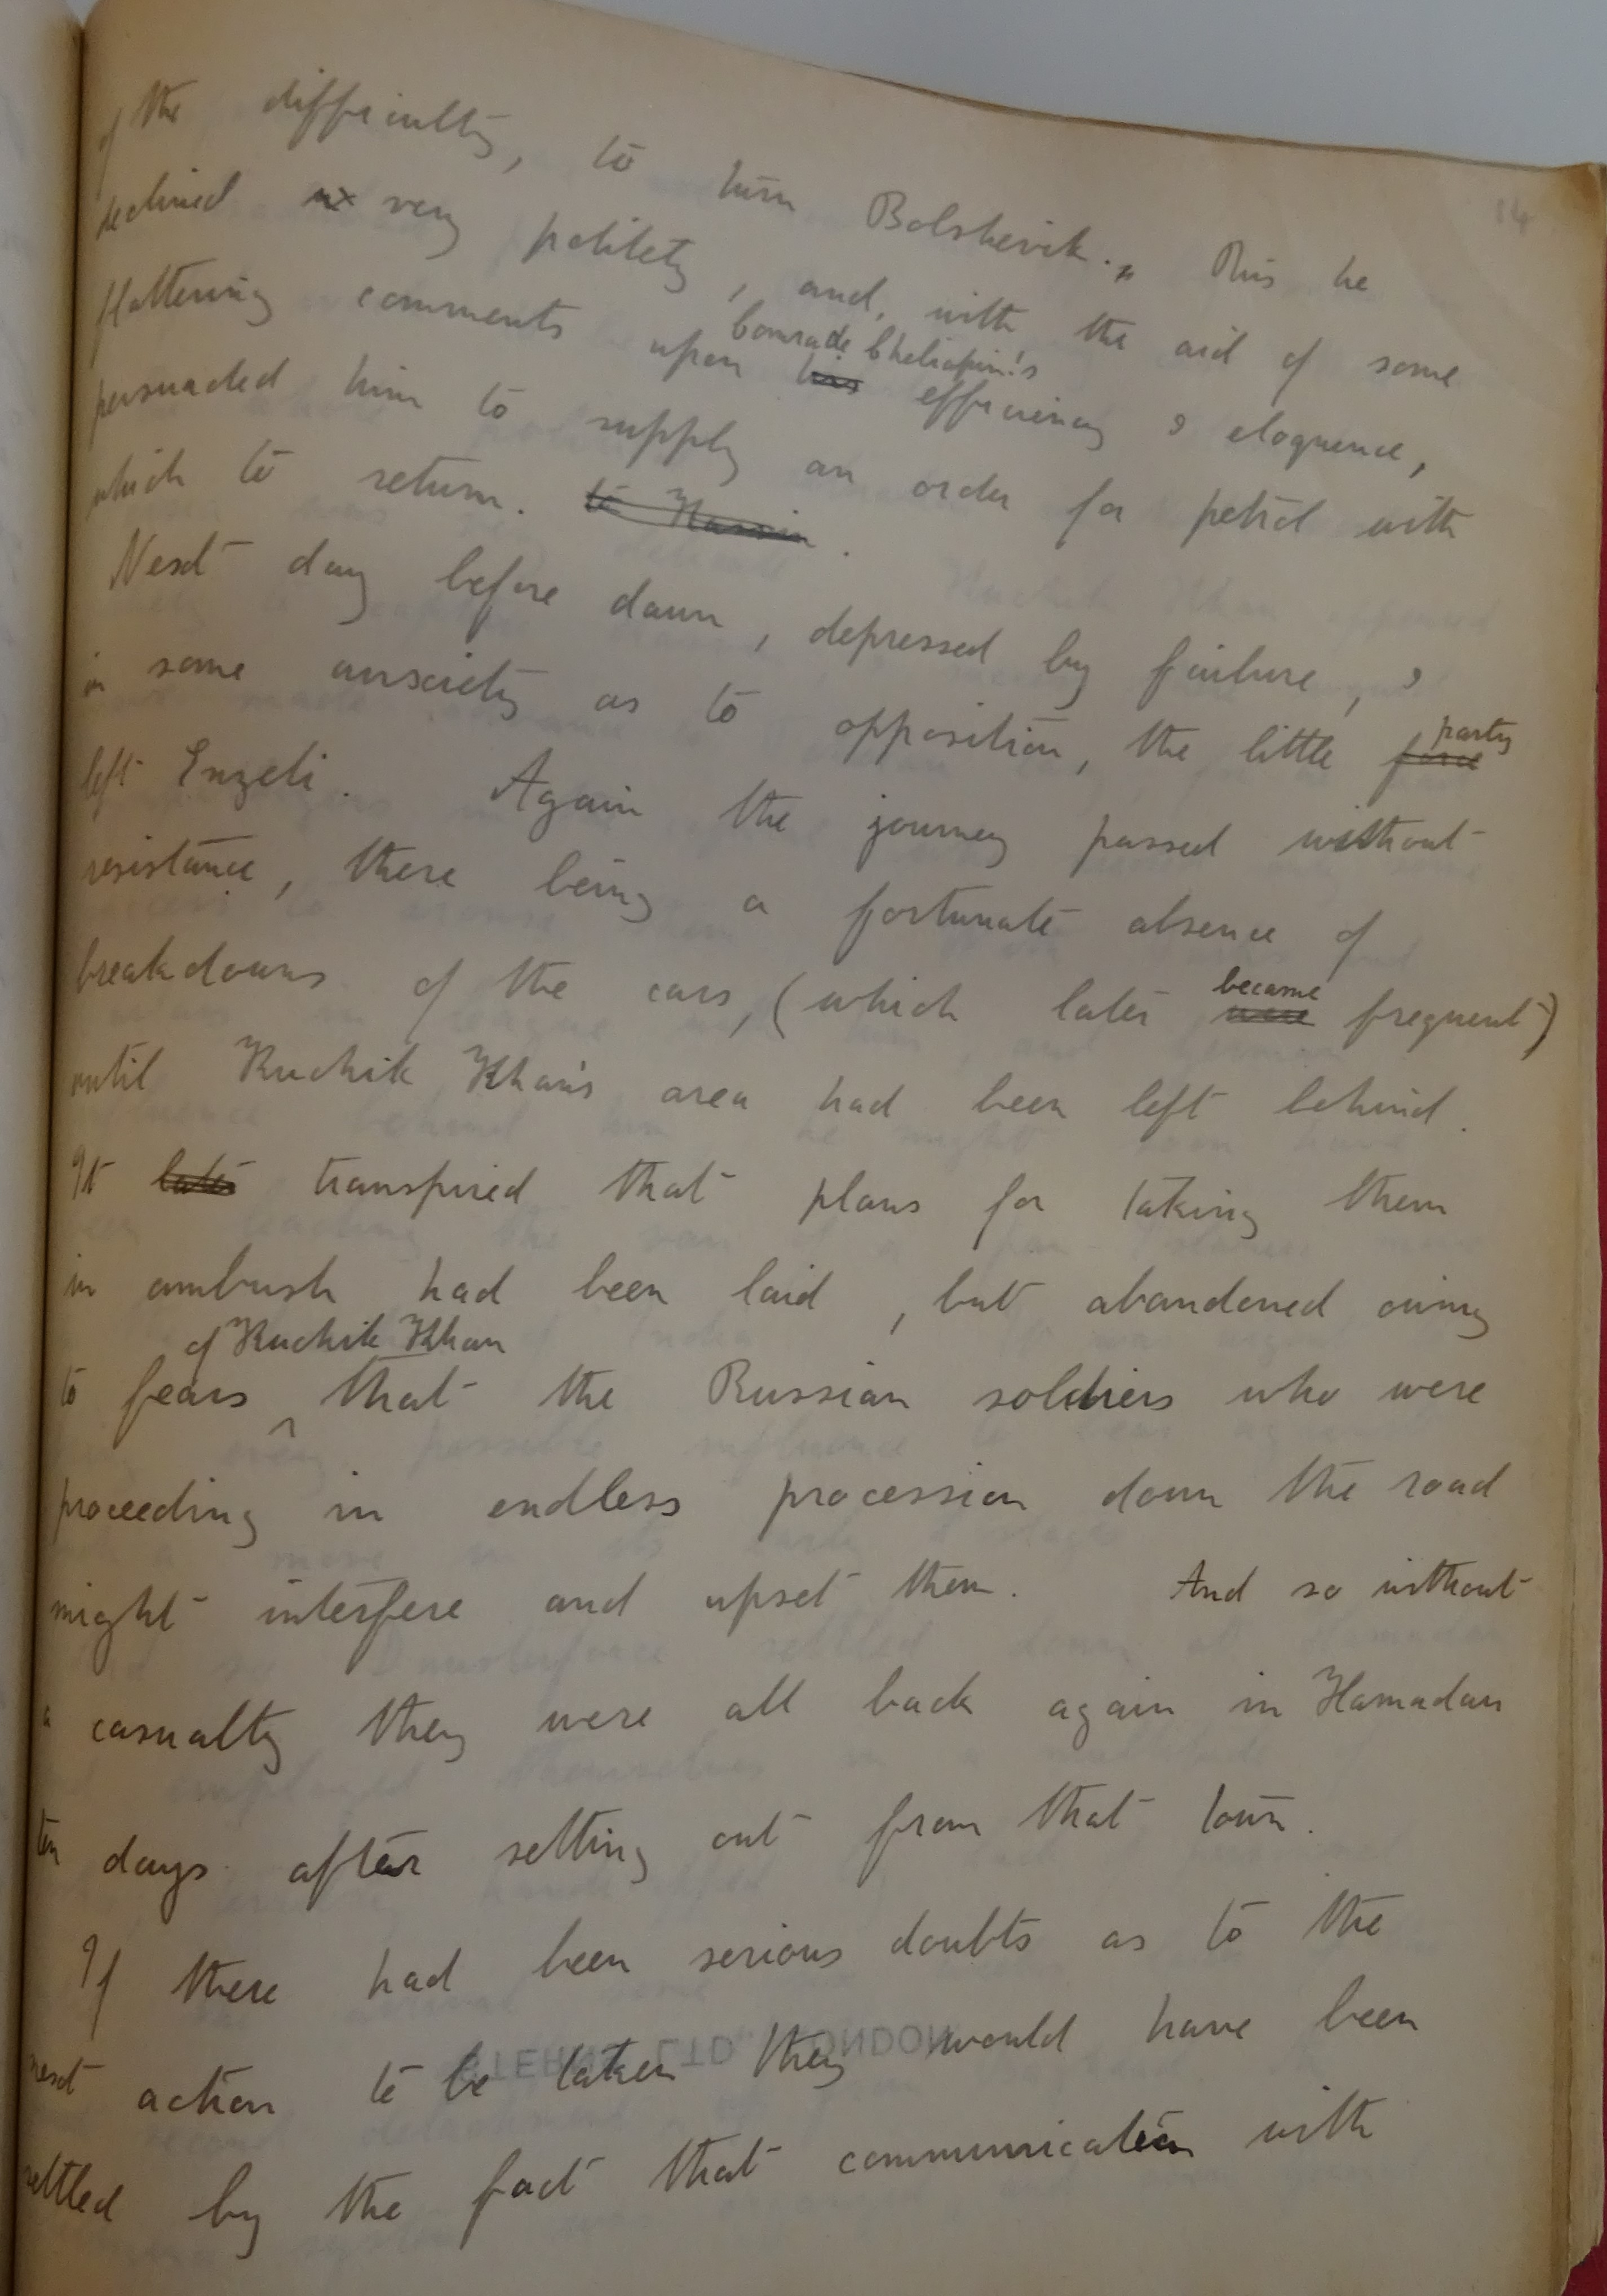 14
of the difficulty, to turn Bolshevik." This he
declined very politely, and, with the aid of some
flattering comments upon his Comrade Cheliapin's efficiency & eloquence,
persuaded him to supply an order for petrol with
which to return. to Kasvin.
Next day before dawn, depressed by failure, &
in some anxiety as to opposition, the little force party
left Enzeli. Again the journey passed without
resistance, there being a fortunate absence of
breakdowns of the cars, (which later were became frequent)
until Kuchik Khan's area had been left behind.
It later transpired that plans for taking them
in ambush had been laid, but abandoned owing
to fears of Kuchik Khan that the Russian soldiers who were
proceeding in endless procession down the road
might interfere and upset them. And so without
a casualty they were all back again in Hamadan
ten days after setting out from that town.
If there had been serious doubts as to the
next action to be taken they would have been
settled by the fact that communication with